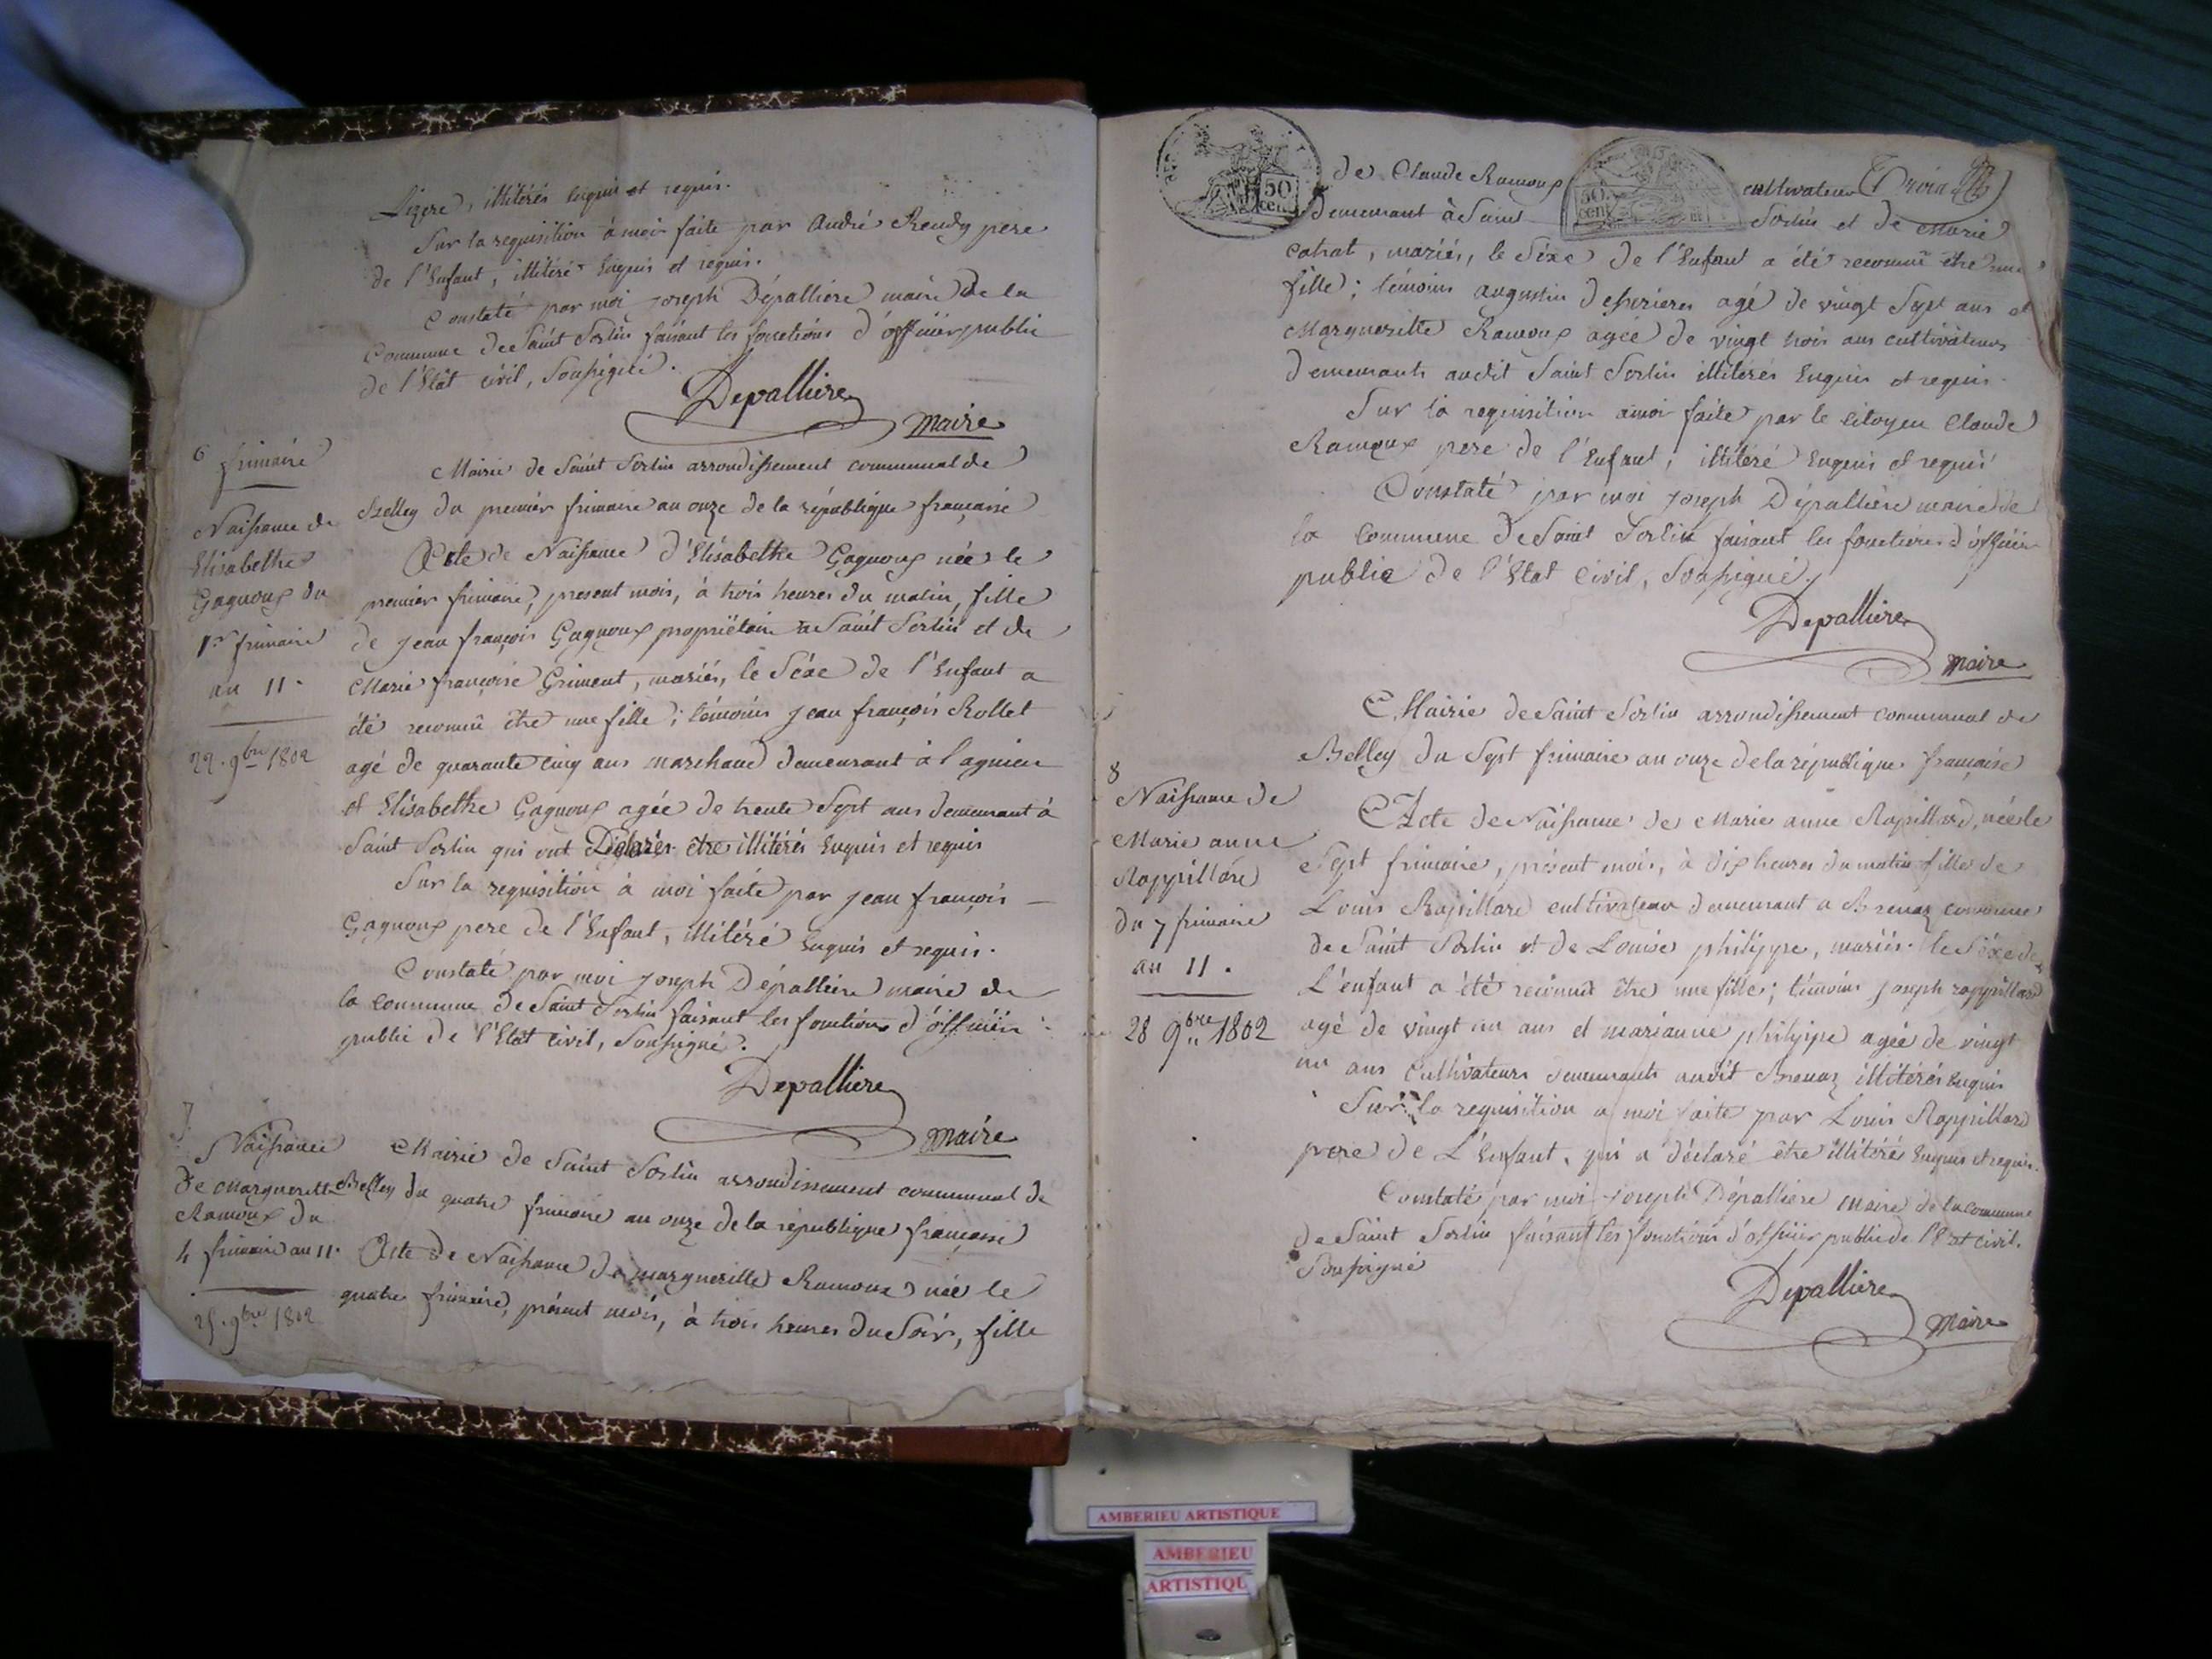 Lizere, illitérés enquis et requis.
Sur la requisition à moi faite par André Rendy pere
de l'Enfant, illitéré enquis et requis.
Constaté par moi joseph Dépalliere maire de la
Commune de Saint Sorlin faisant les fonctions d'officier public
de l'Etat civil, Soussigné.
Depalliere
maire
6 frimaire
Naissance de
Elisabethe
Gagnoux du
1er frimaire
an 11.
22. 9bre 1802
Mairie de Saint Sorlin arrondissement communal de
Belley du premier frimaire an onze de la république française
Acte de Naissance d'Elisabethe Gagnoux née le
premier frimaire, present mois, à trois heures du matin, fille
de jean françois Gagnoux propriëtaire a Saint Sorlin et de
Marie françoise Griment, mariés, le Séxe de l'Enfant a
été reconnû être une fille ; témoins jean françois Rollet
agé de quarante cinq ans marchand demeurant à lagnieu
et Elisabethe Gagnoux agée de trente Sept ans demeurant à
Saint Sorlin qui ont Déclarés être illitérés Enquis et requis
Sur la requisition à moi faite par jean françois
Gagnoux pere de l'Enfant, illitéré Enquis et requis.
Constaté par moi joseph Dépalliere maire de
la commune de Saint Sorlin faisant les fonctions d'officier
public de l'Etat civil, Soussigné.
Depalliere
maire
7
Naissance
de Margueritte
Ramoux du
4 frimaire an 11.
25. 9bre 1802
Mairie de Saint Sorlin arrondissement communal de
Belley du quatre frimaire an onze de la république française
Acte de Naissance de margueritte Ramoux née le
quatre frimaire, présent mois, à trois heures du Soir, fille
50 cen.
50. cen
de Claude Ramoux cultivateur
demeurant à Saint Sorlin et de Marie
Cahat, mariés, le Séxe de l'Enfant a été reconnû être une
fille ; témoins augustin desperieres agé de vingt Sept ans et
Margueritte Ramoux agée de vingt trois ans cultivateurs
demeurants audit Saint Sorlin illitérés Enquis et requis.
Sur la requisition a moi faite par le citoyen Claude
Ramoux pere de l'Enfant, illitéré Enquis et requis
Constaté par moi joseph Dépalliere maire de
la Commune de Saint Sorlin faisant les fonctions d'officier
public de l'Etat Civil, Soussigné.
Depalliere
maire
8
Naissance de
Marie anne
Rappillard
du 7 frimaire
an 11.
28 9bre 1802
Mairie de Saint Sorlin arrondissement communal de
Belley du Sept frimaire an onze de la république française
Acte de Naissance de Marie anne Rapillard, née le
Sept frimaire, présent mois, à dix heures du matin fille de
Louis Rapillard cultivateur demeurant a Brenaz commune
de Saint Sorlin et de Louise philippe, mariés. le Séxe de
L'enfant a été reconnû être une fille ; témoins joseph rappillard
agé de vingt un ans et marianne philippe agée de vingt
un ans Cultivateurs demeurants audit Brenaz illitérés Enquis
Sur la requisition a moi faite par Louis Rappillard
pere de L'Enfant, qui a déclaré être illitéré Enquis et requis.
Constaté par moi joseph Dépalliere maire de la commune
de Saint Sorlin faisant les fonctions d'officier public de l'Etat civil.
Soussigné
Depalliere
maire
AMBERIEU ARTISTIQUE
AMBERIEU
ARTISTIQU